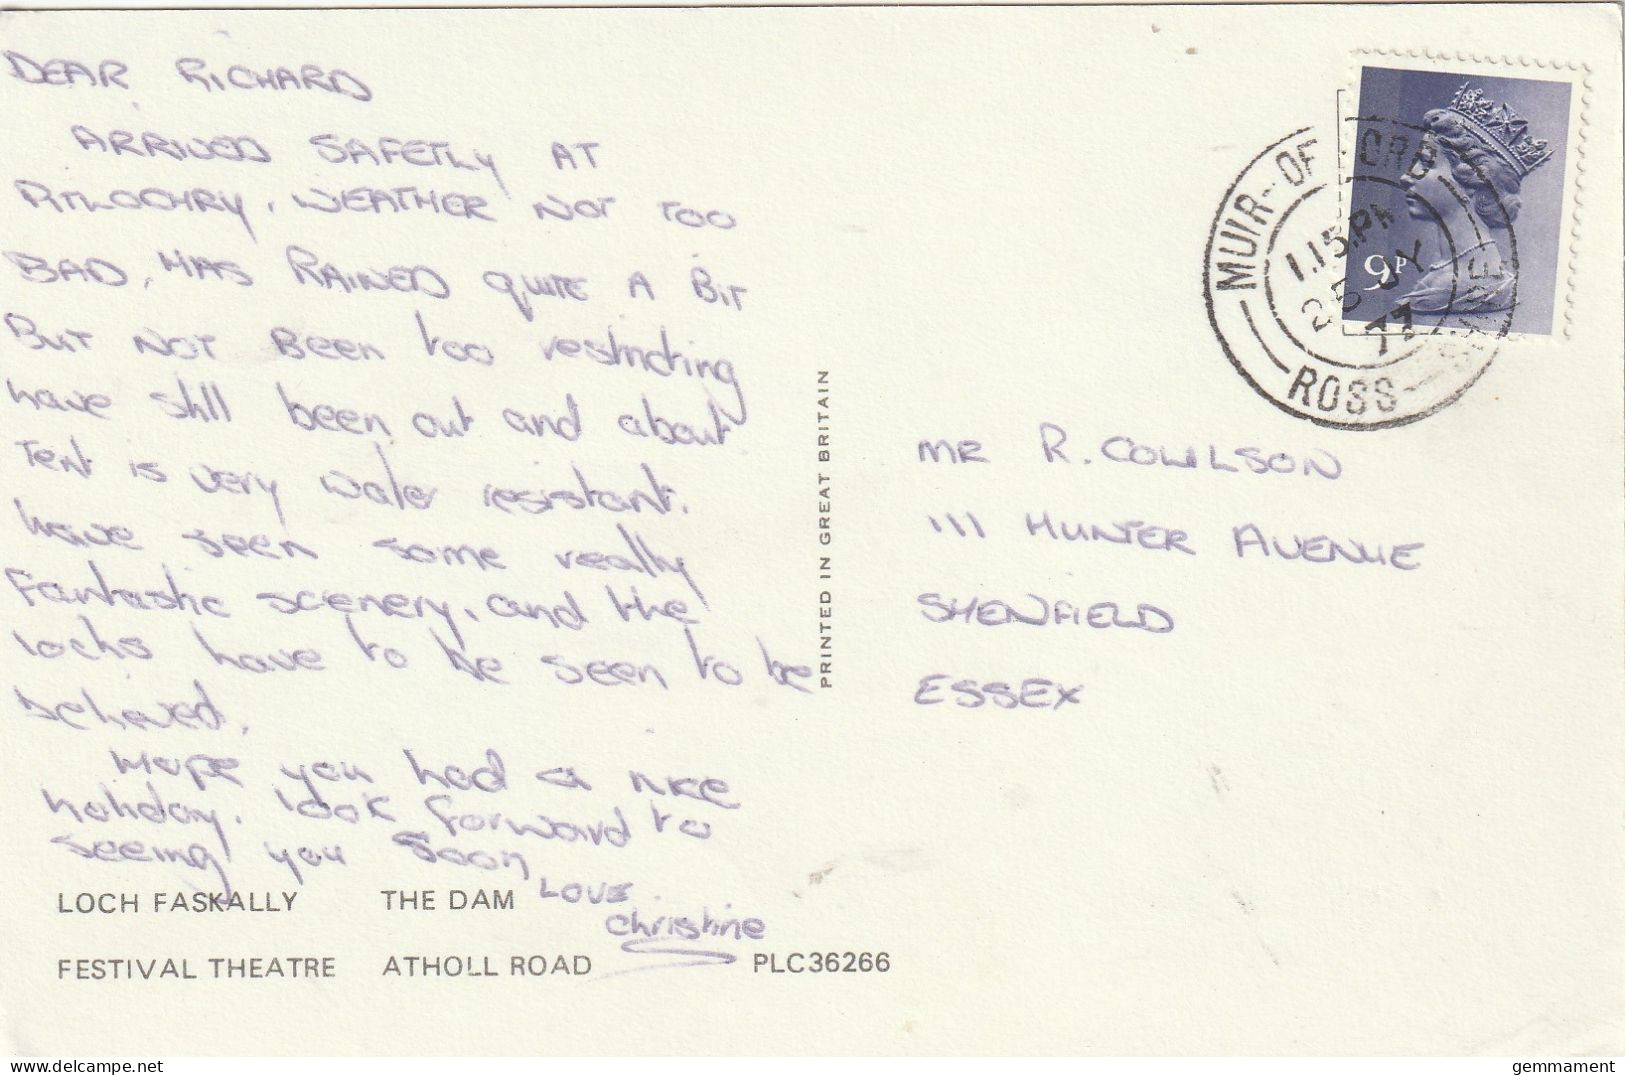 DEAR RICHARD
ARRIVED SAFETLY AT
PITLOCHRY, WEATHER NOT TOO
BAD, HAS RAINED QUITE A BIT
BUT NOT BEEN too restricting
have still been out and about
Tent is very water resistant.
have seen some really
fantastic scenery, and the
lochs have to be seen to be
believed.
Hope you had a nice
holiday. look forward to
seeing you soon
LOVE
Christine
LOCH FASKALLY THE DAM
FESTIVAL THEATRE ATHOLL ROAD PLC36266
PRINTED IN GREAT BRITAIN
MUIR-OF-ORD
1.15 PM
25 JY
77
ROSS-SHIRE
9P
MR R. COWLSON
111 HUNTER AVENUE
SHENFIELD
ESSEX
delcampe.net
gemmament